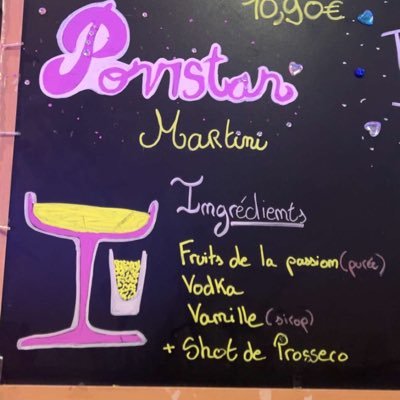 10,90€
Pornstar
Martini
Ingrédients
Fruits de la passion (purée)
Vodka
Vanille (sirop)
+ Shot de Prossero